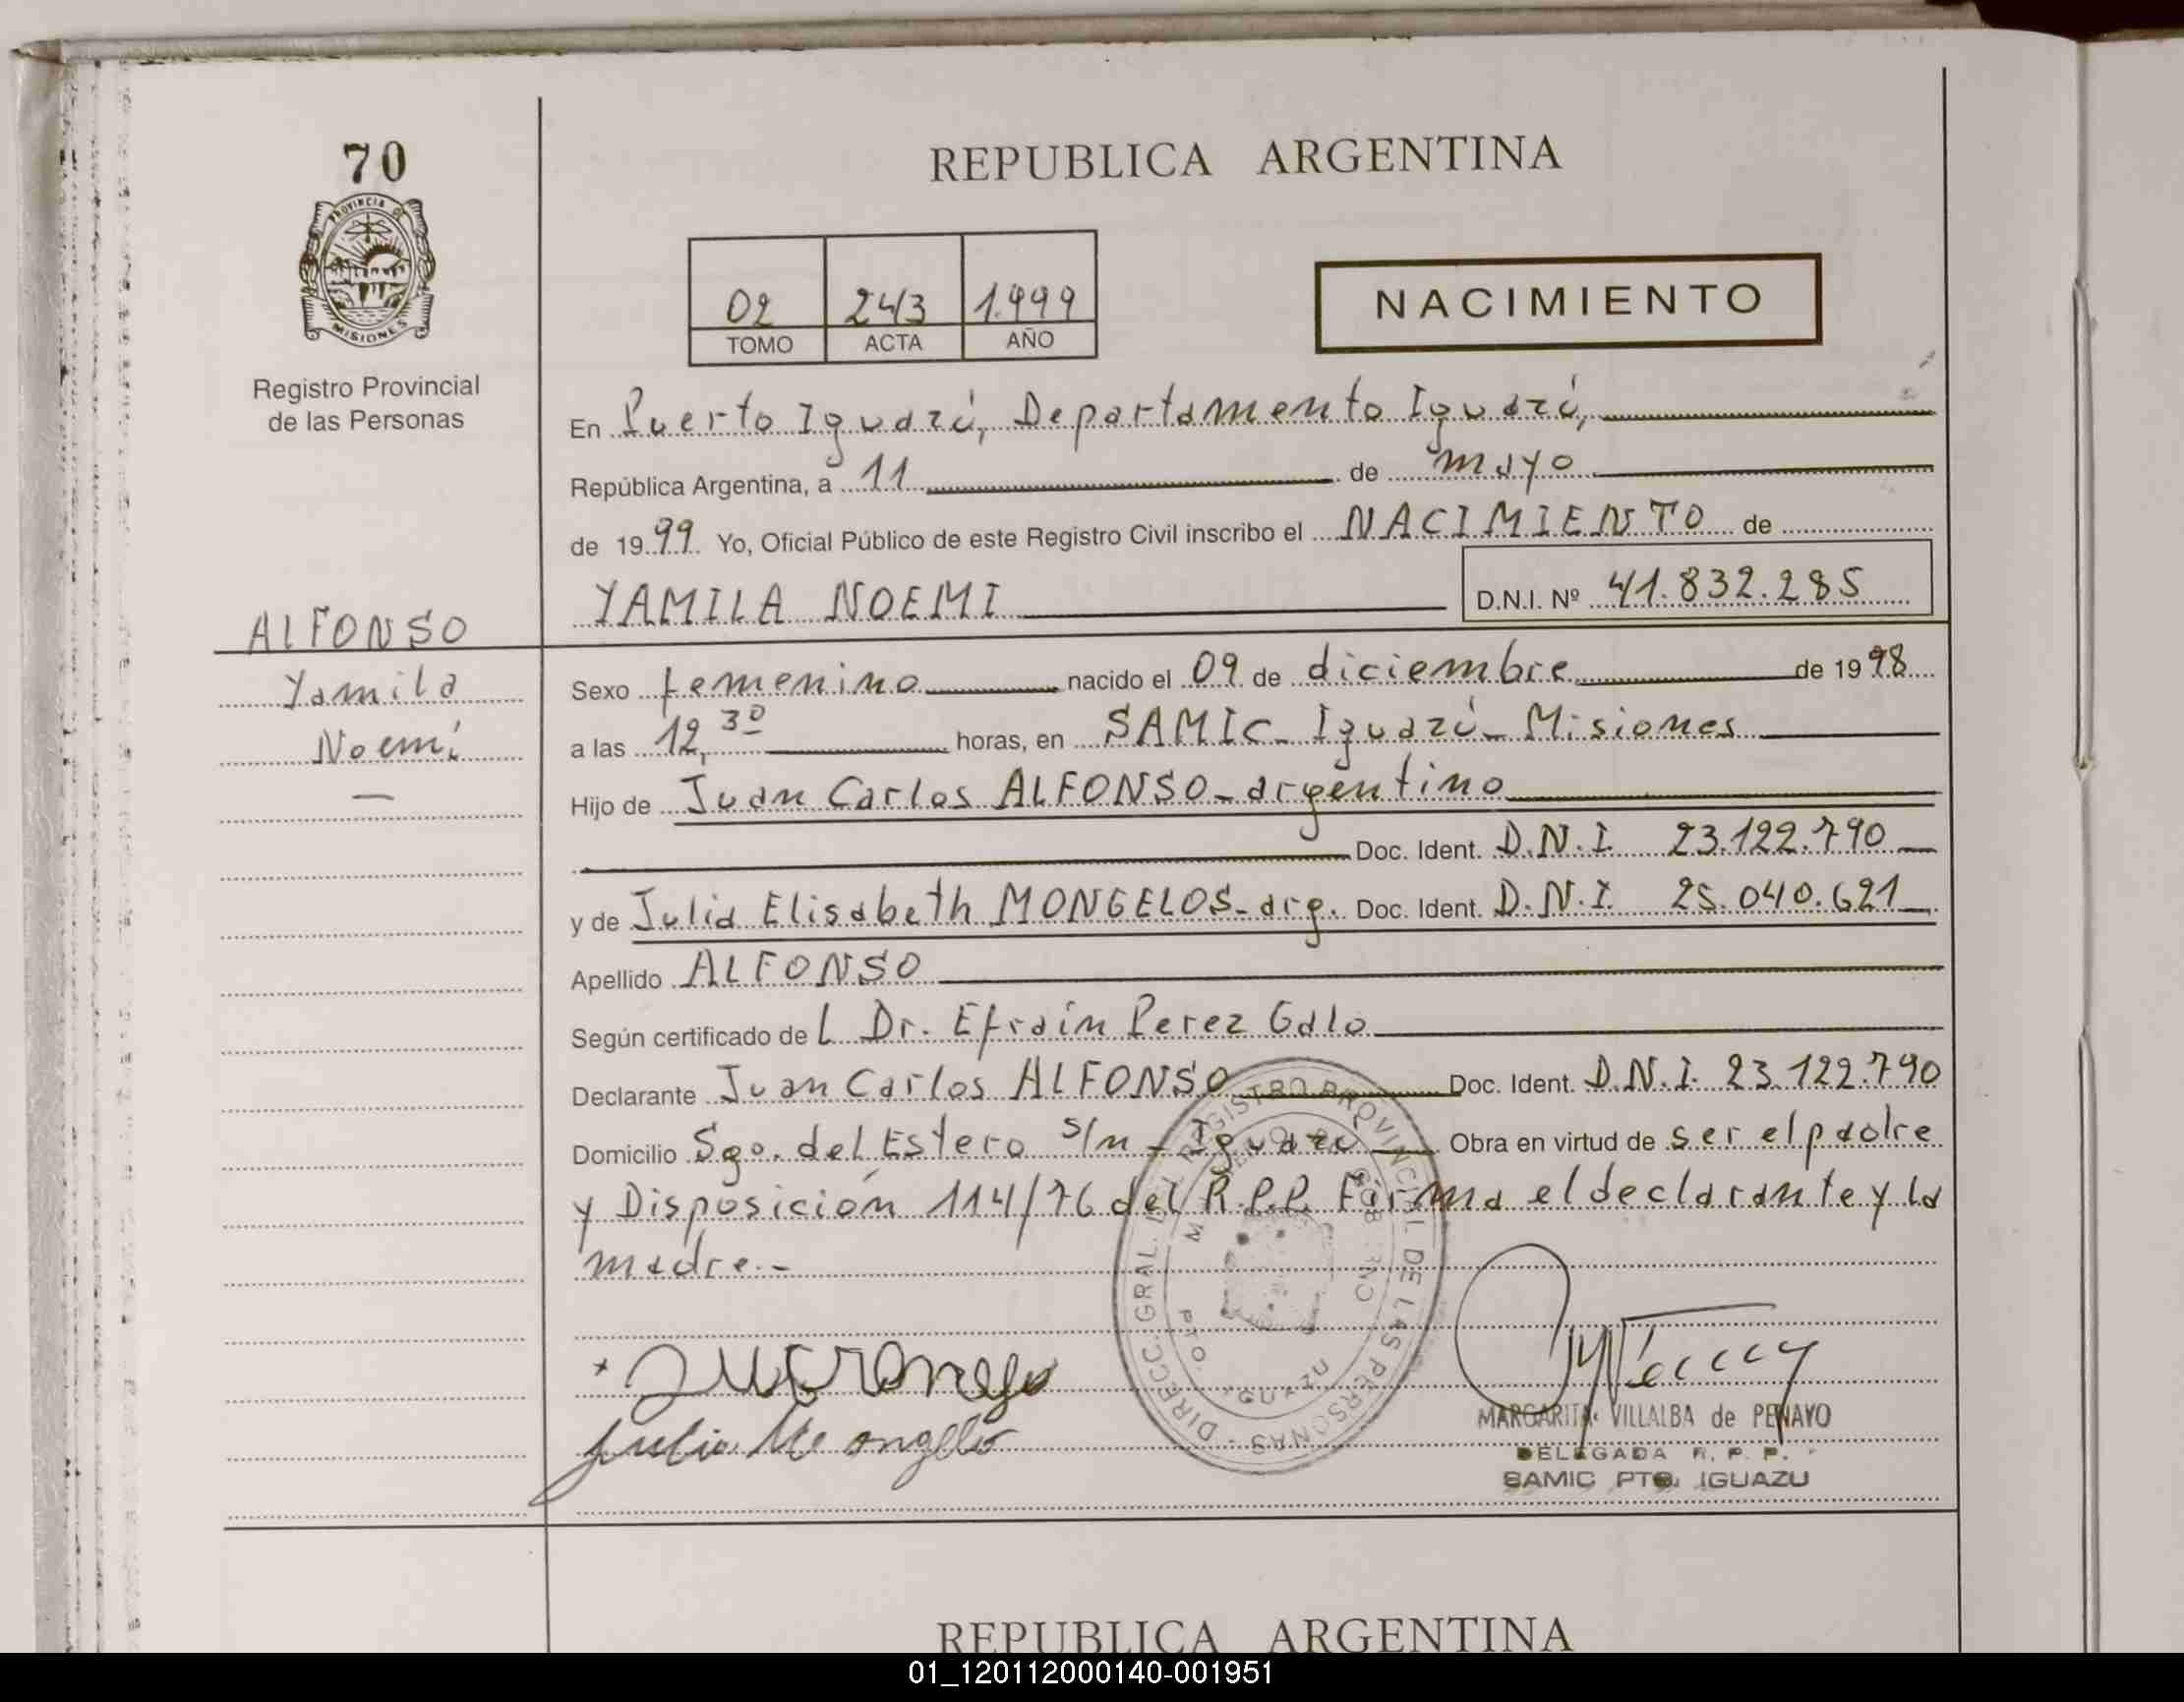 70
PROVINCIA DE
MISIONES
Registro Provincial
de las Personas
ALFONSO
Yamila
Noemí
—
REPUBLICA ARGENTINA
02 243 1.999
TOMO ACTA AÑO
NACIMIENTO
En Puerto Iguazú, Departamento Iguazú,
República Argentina, a 11 de mayo
de 1999 Yo, Oficial Público de este Registro Civil inscribo el NACIMIENTO de
YAMILA NOEMI D.N.I. Nº 41.832.285
Sexo femenino nacido el 09 de diciembre de 1998
a las 12,30 horas, en SAMIC - Iguazú - Misiones
Hijo de Juan Carlos ALFONSO - argentino
Doc. Ident. D.N.I. 23.122.790
y de Julia Elisabeth MONGELOS - arg. Doc. Ident. D.N.I. 25.040.621
Apellido ALFONSO
Según certificado de l Dr. Efraín Perez Galo
Declarante Juan Carlos ALFONSO Doc. Ident. D.N.I. 23.122.790
Domicilio Sgo. del Estero s/n - Iguazú Obra en virtud de ser el padre
y Disposición 114/76 del R.P.P. Firma el declarante y la
madre.-
DIRECC. GRAL. DEL REGISTRO PROVINCIAL DE LAS PERSONAS
IGUAZU
MARGARITA VILLALBA de PENAYO
DELEGADA R. P. P.
SAMIC PTO. IGUAZU
REPUBLICA ARGENTINA
01_120112000140-001951